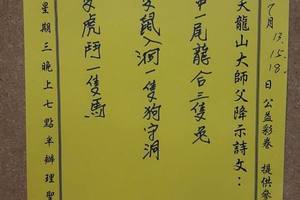 7月 13.15.18.日公益彩券 提供參
天龍山大師父降示詩文：
中一尾龍合三隻兔
隻鼠入洞一隻狗守洞
隻虎鬥一隻馬
星期三晚上七點半辦理聖